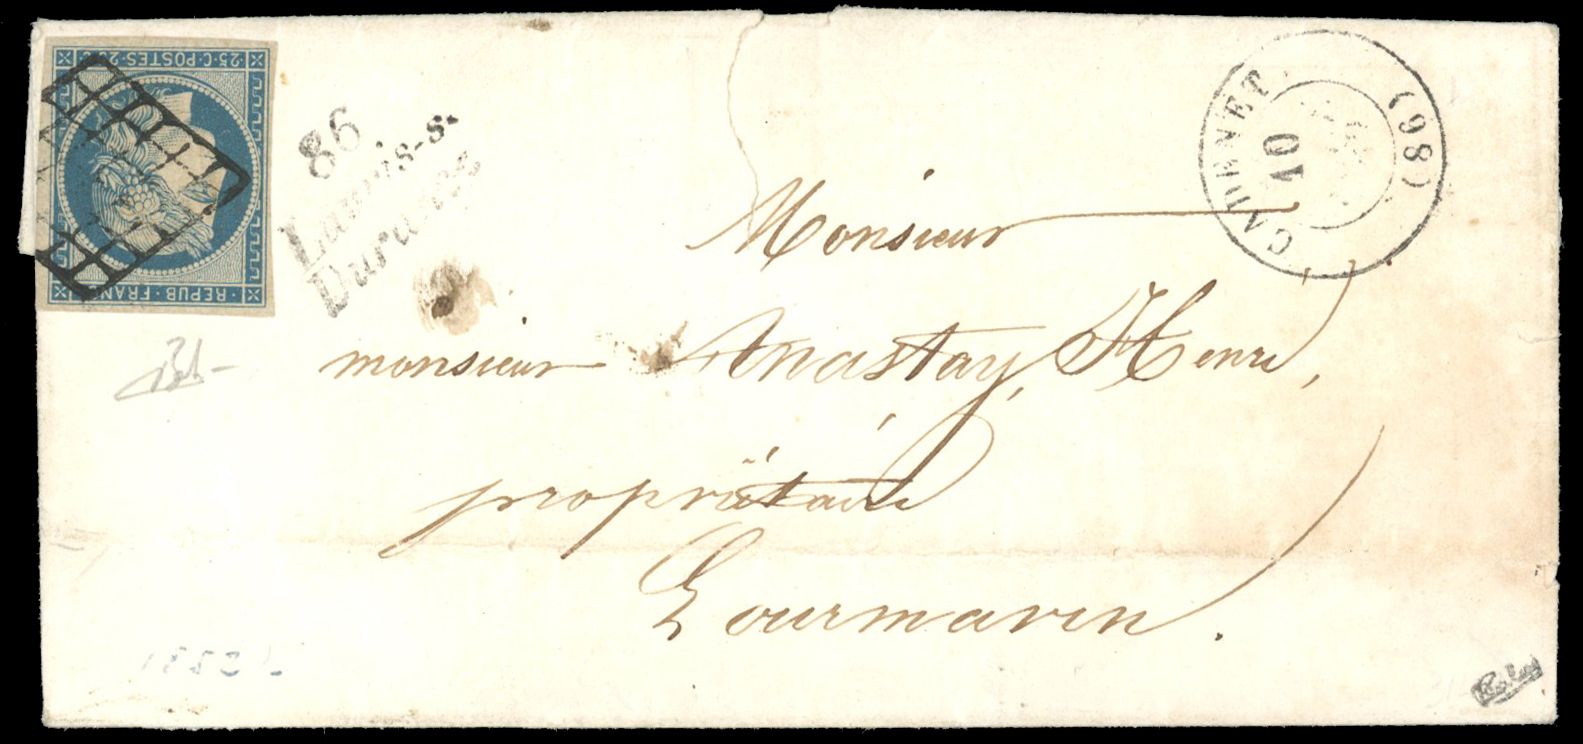 25·C·POSTES·25·C
REPUB·FRANC
86
Lauris-s.
Durance
CADENET
10
(98)
Monsieur
monsieur Anastay, Henri,
propriétaire
Lourmarin.